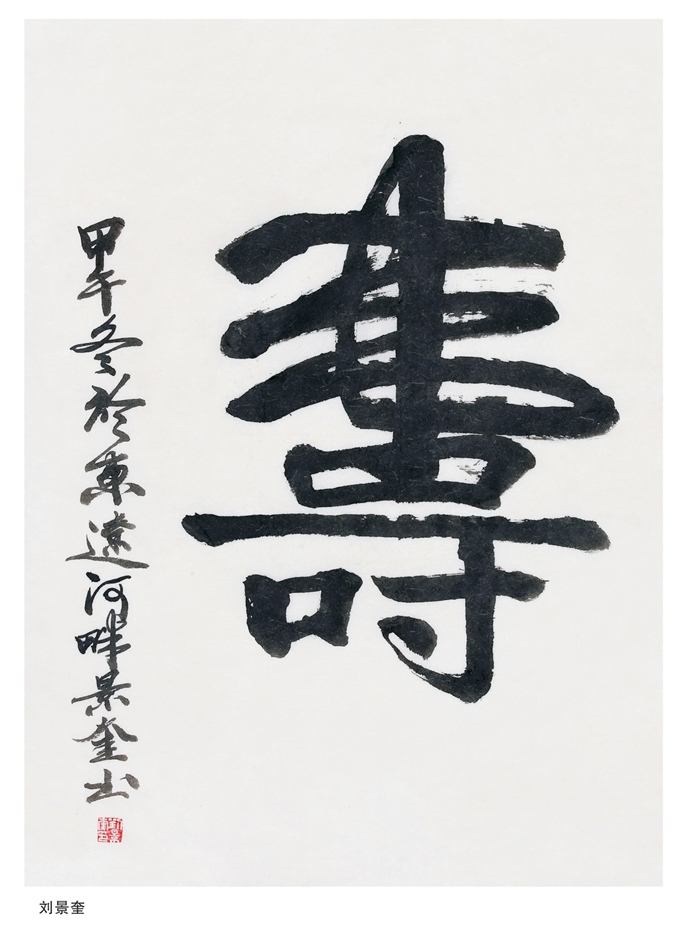 壽
甲午冬於東遼河畔景奎书
刘景奎